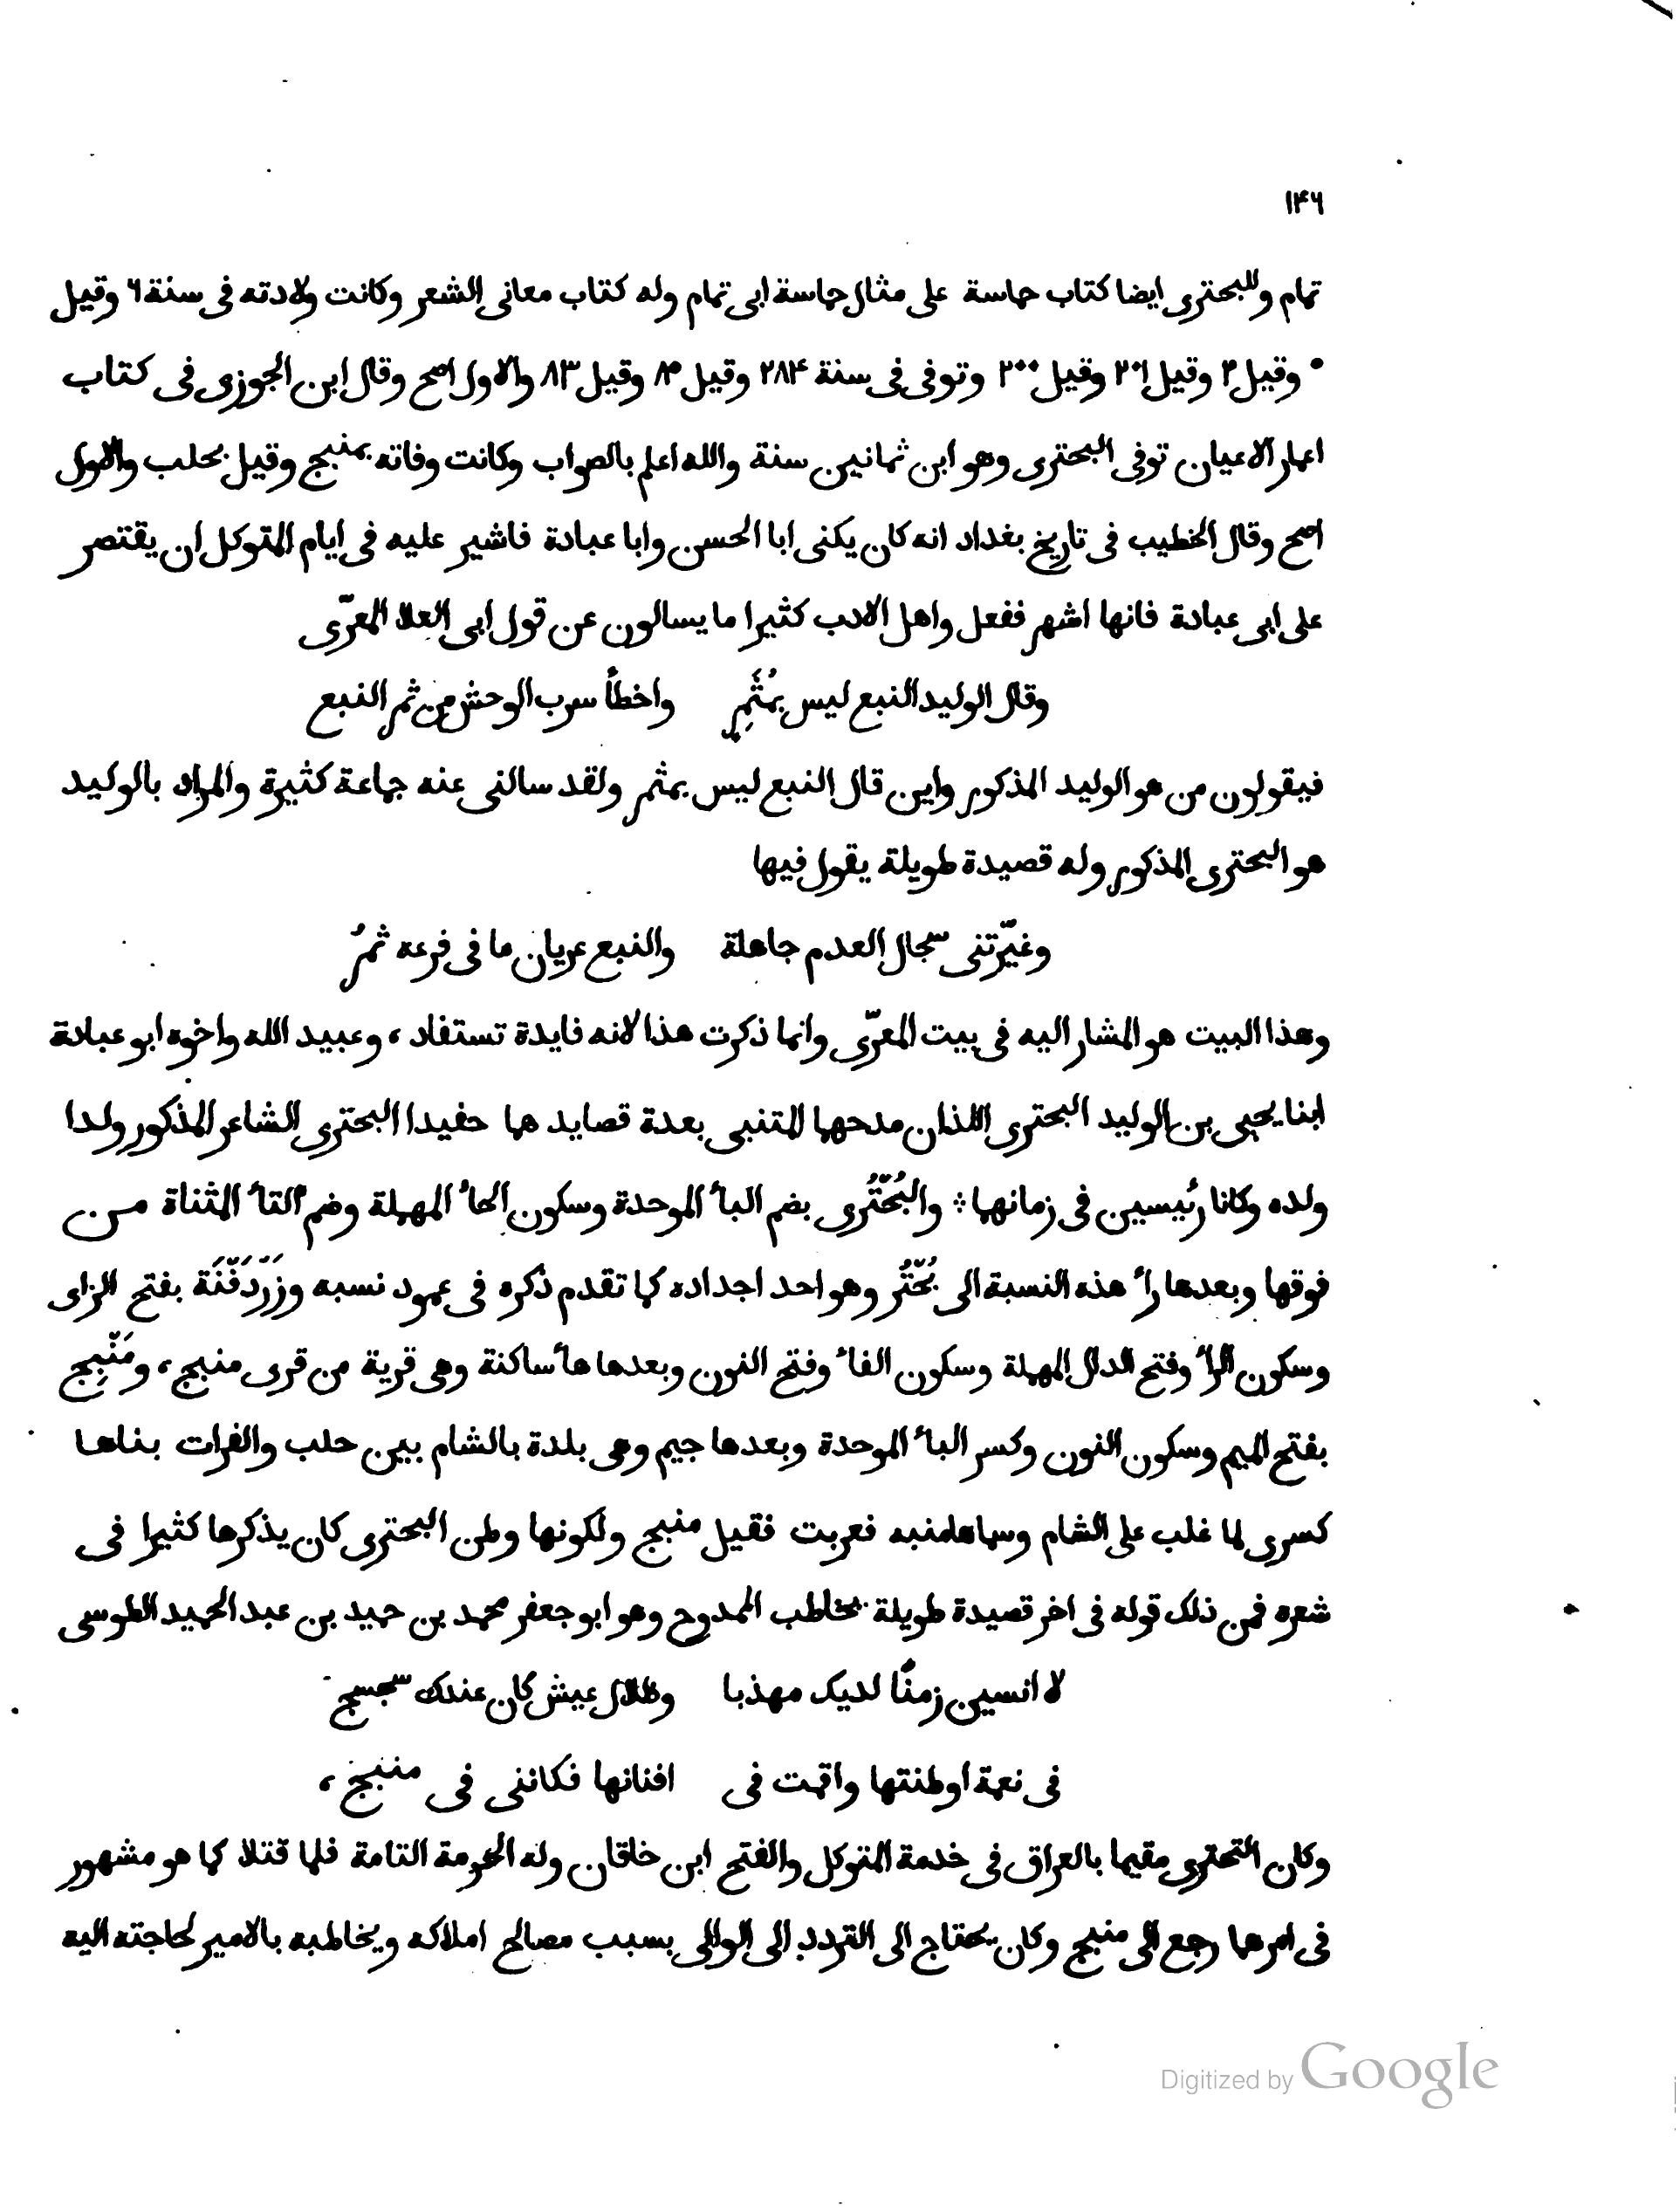 ١٤٦
تمام وللبحترى ايضا كتاب حماسة على مثال حماسة ابى تمام وله كتاب معانى الشعر وكانت ولادته فى سنة ٦ وقيل
٠ وقيل ٢ وقيل ٢٠١ وقيل ٢٠٠ وتوفى فى سنة ٢٨٤ وقيل ٨٥ وقيل ٨٣ والاول اصح وقال ابن الجوزى فى كتاب
اعمار الاعيان توفى البحترى وهو ابن ثمانين سنة والله اعلم بالصواب وكانت وفاته بمنبج وقيل بحلب والاول
اصح وقال الخطيب فى تاريخ بغداد انه كان يكنى ابا الحسن وابا عبادة فاشير عليه فى ايام المتوكل ان يقتصر
على ابى عبادة فانها اشهر ففعل واهل الادب كثيرا ما يسالون عن قول ابى العلا المعرّى
وقال الوليد النبع ليس بمُثَمِرٍ واخطأ سرب الوحش من ثمر النبع
فيقولون من هو الوليد المذكور واين قال النبع ليس بمثمر ولقد سالنى عنه جماعة كثيرة والمراد بالوليد
هو البحترى المذكور وله قصيدة طويلة يقول فيها
وغيّرتنى سجال العدم جاهلة والنبع عريان ما فى فرعه ثمرُ
وهذا البيت هو المشار اليه فى بيت المعرّى وانما ذكرت هذا لانه فايدة تستفاد، وعبيد الله واخوه ابو عبادة
ابنا يحيى بن الوليد البحترى اللذان مدحهما المتنبى بعدة قصايد هما حفيدا البحترى الشاعر المذكور ولدا
ولده وكانا رئيسين فى زمانهما ⁘ والبُحْتُرى بضم الباء الموحدة وسكون الحاء المهملة وضم التاء المثناة من
فوقها وبعدها راء هذه النسبة الى بُحْتُر وهو احد اجداده كما تقدم ذكره فى عمود نسبه وزَرْدَفْنَة بفتح الزاى
وسكون الراء وفتح الدال المهملة وسكون الفاء وفتح النون وبعدها هاء ساكنة وهى قرية من قرى منبج، ومَنْبِج
بفتح الميم وسكون النون وكسر الباء الموحدة وبعدها جيم وهى بلدة بالشام بين حلب والفرات بناها
كسرى لما غلب على الشام وسماها منبه فعربت فقيل منبج ولكونها وطن البحترى كان يذكرها كثيرا فى
شعره فمن ذلك قوله فى اخر قصيدة طويلة يخاطب الممدوح وهو ابو جعفر محمد بن حميد بن عبد الحميد الطوسى
لا انسين زمنًا لديك مهذبا وظلال عيش كان عندك سجسج
فى نعمة اوطنتها واقمت فى افنانها فكاننى فى منبج،
وكان التحترى مقيما بالعراق فى خدمة المتوكل والفتح ابن خاقان وله الحرمة التامة فلما قتلا كما هو مشهور
فى امرهما رجع الى منبج وكان يحتاج الى التردد الى الوالى بسبب مصالح املاكه ويخاطبه بالامير لحاجته اليه
Digitized by Google